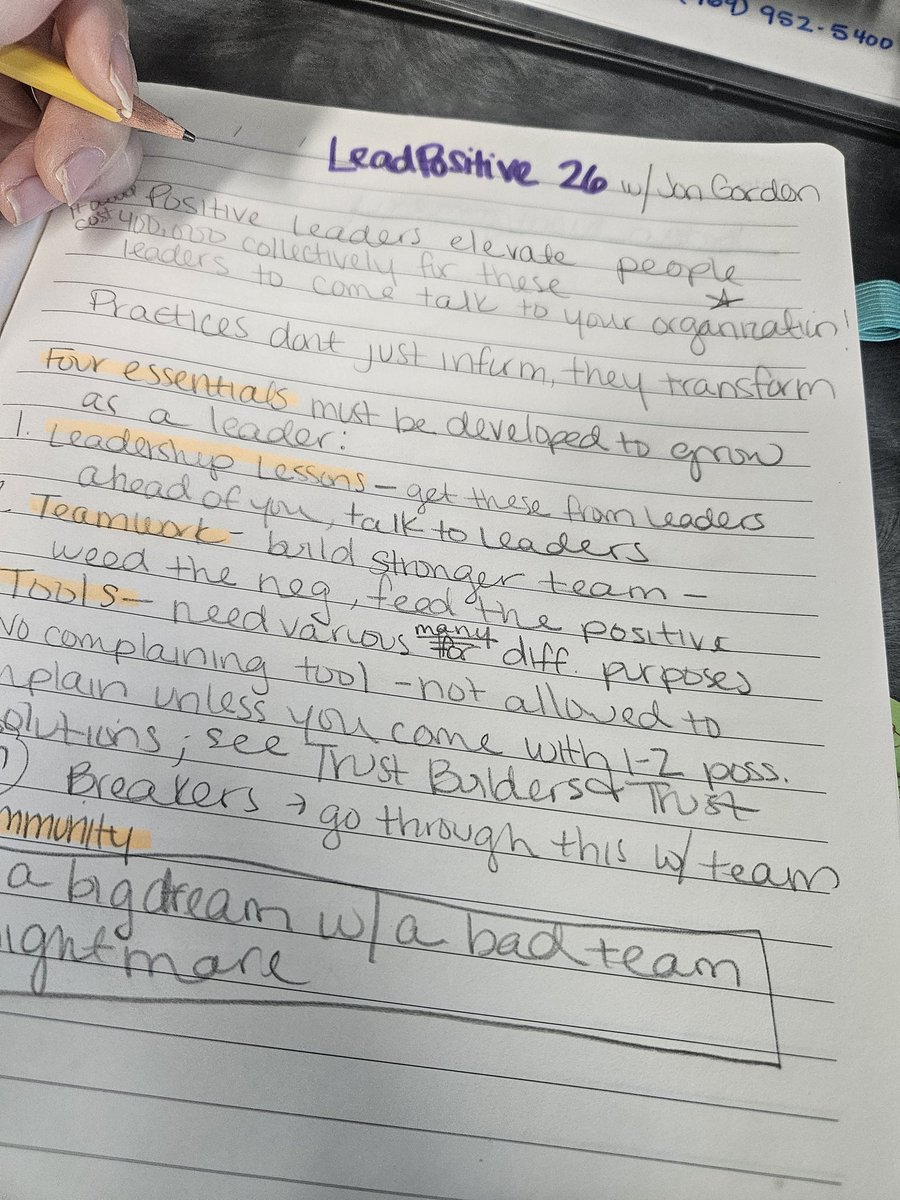 952-5400
LeadPositive 26 w/ Jon Gordon
Positive leaders elevate people
cost 400,000 collectively for these
leaders to come talk to your organization!
Practices dont just inform, they transform
Four essentials must be developed to grow
as a leader:
1. Leadership Lessons - get these from leaders
ahead of you, talk to leaders
Teamwork - build stronger team -
weed the neg, feed the positive
Tools - need various many diff. purposes
No complaining tool - not allowed to
mplain unless you come with 1-2 poss.
solutions; see Trust Builders & Trust
Breakers → go through this w/ team
mmunity
a big dream w/ a bad team
ightmare